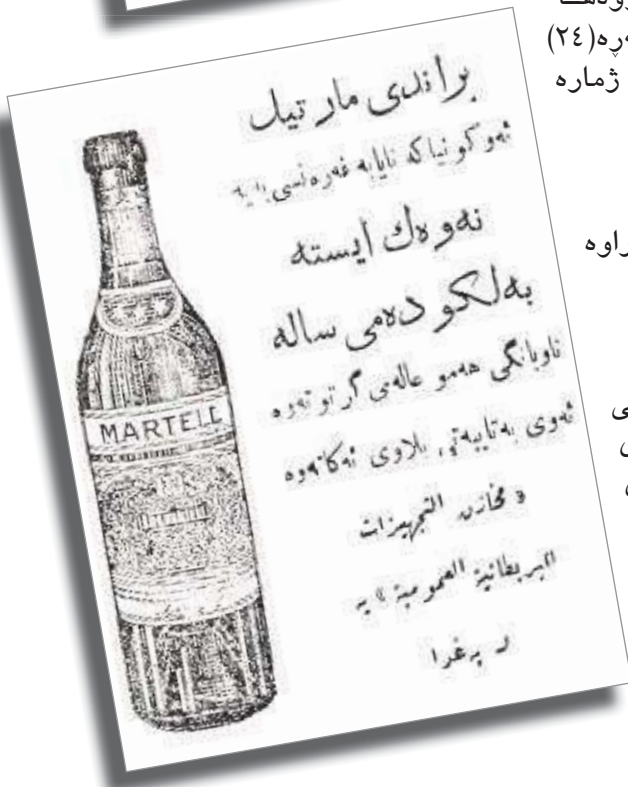 (٢٤)
ژمارە
براندى مارتيل
ئەو كونياكە نايابە فەرەنسى يە
نەوەك ايستە
بەلكو دەمى سالە
ناوبانگى هەمو عالەمى گرتوتەوە
ئەوى بەتايبەتى بلاوى ئەكاتەوە
« مخازن التجهيزات
البريطانية العمومية » يە
لە بەغدا
MARTELL